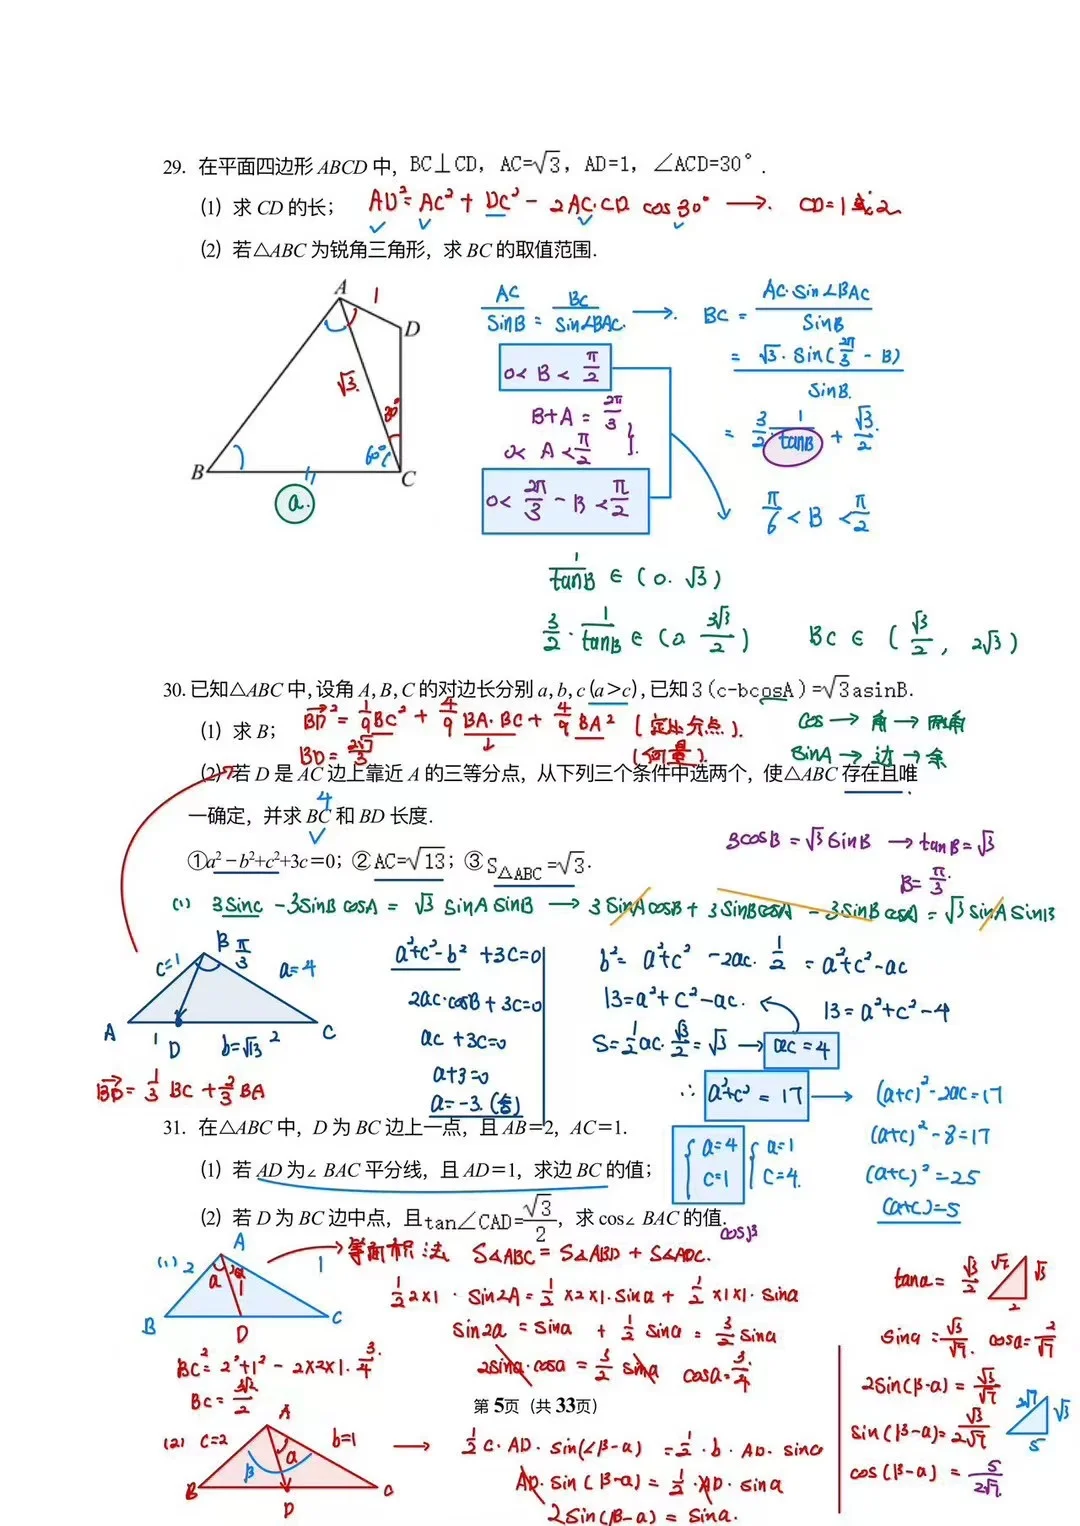 29. 在平面四边形 ABCD 中，BC⊥CD，AC=√3，AD=1，∠ACD=30°.
(1) 求 CD 的长；
AD² = AC² + DC² - 2AC·CD cos30° → CD=1或2
(2) 若△ABC 为锐角三角形，求 BC 的取值范围.
A 1
D
√3
30°
60°
B
C
a.
AC/sinB = BC/sin∠BAC. → BC = AC·sin∠BAC/sinB
0 < B < π/2
= √3·sin(2π/3 - B)/sinB.
B+A = 2π/3
0 < A < π/2
= 3/2·1/tanB + √3/2.
0 < 2π/3 - B < π/2
π/6 < B < π/2
1/tanB ∈ (0. √3)
3/2·1/tanB ∈ (0. 3√3/2)
BC ∈ (√3/2, 2√3)
30.已知△ABC 中，设角 A, B, C 的对边长分别 a, b, c (a>c)，已知 3(c-bcosA)=√3asinB.
(1) 求 B；
BD² = 1/9 BC² + 4/9 BA·BC + 4/9 BA² (定比分点).
cos → 角 → 两角
BD = 2√7/3
(向量).
sinA → 边 → 余
(2) 若 D 是 AC 边上靠近 A 的三等分点，从下列三个条件中选两个，使△ABC 存在且唯
4
一确定，并求 BC 和 BD 长度.
①a²－b²+c²+3c=0；②AC=√13；③S△ABC=√3.
3cosB = √3 sinB → tanB = √3
B = π/3.
(1) 3sinC - 3sinB cosA = √3 sinA sinB → 3sinAcosB + 3sinBcosA - 3sinB cosA = √3 sinA sinB
B π/3
c=1
a=4
A 1 D b=√13 2 C
BD = 1/3 BC + 2/3 BA
a²+c²-b² +3c=0
2ac·cosB + 3c=0
ac +3c=0
a+3=0
a=-3.(舍)
b² = a²+c² -2ac·1/2 = a²+c²-ac
13 = a²+c²-ac.
13 = a²+c²-4
S = 1/2 ac·√3/2 = √3 → ac=4
∴ a²+c² = 17 → (a+c)²-2ac=17
(a+c)²-8=17
(a+c)²=25
(a+c)=5
{a=4 c=1
{a=1 c=4.
31. 在△ABC 中，D 为 BC 边上一点，且 AB=2，AC=1.
(1) 若 AD 为∠BAC 平分线，且 AD=1，求边 BC 的值；
(2) 若 D 为 BC 边中点，且tan∠CAD=√3/2，求 cos∠BAC 的值.
cosβ
(1) 2 A 1
α α 1
B D C
→ 等面积法 S△ABC = S△ABD + S△ADC.
1/2 2×1·sin2α = 1/2×2×1·sinα + 1/2×1×1·sinα
sin2α = sinα + 1/2 sinα = 3/2 sinα
2sinα·cosα = 3/2 sinα cosα = 3/4
BC² = 2²+1² - 2×2×1·3/4
BC = 3√2/2
第 5页 (共 33页)
(2) c=2 A b=1
β α
B D C
→ 1/2 c·AD·sin(∠β-α) = 1/2·b·AD·sinα
AD·sin(β-α) = 1/2·AD·sinα
2sin(β-α) = sinα.
tanα = √3/2
√7 √3 2
sinα = √3/√7. cosα = 2/√7
2sin(β-α) = √3/√7
sin(β-α) = √3/2√7
2√7 √3 5
cos(β-α) = 5/2√7.